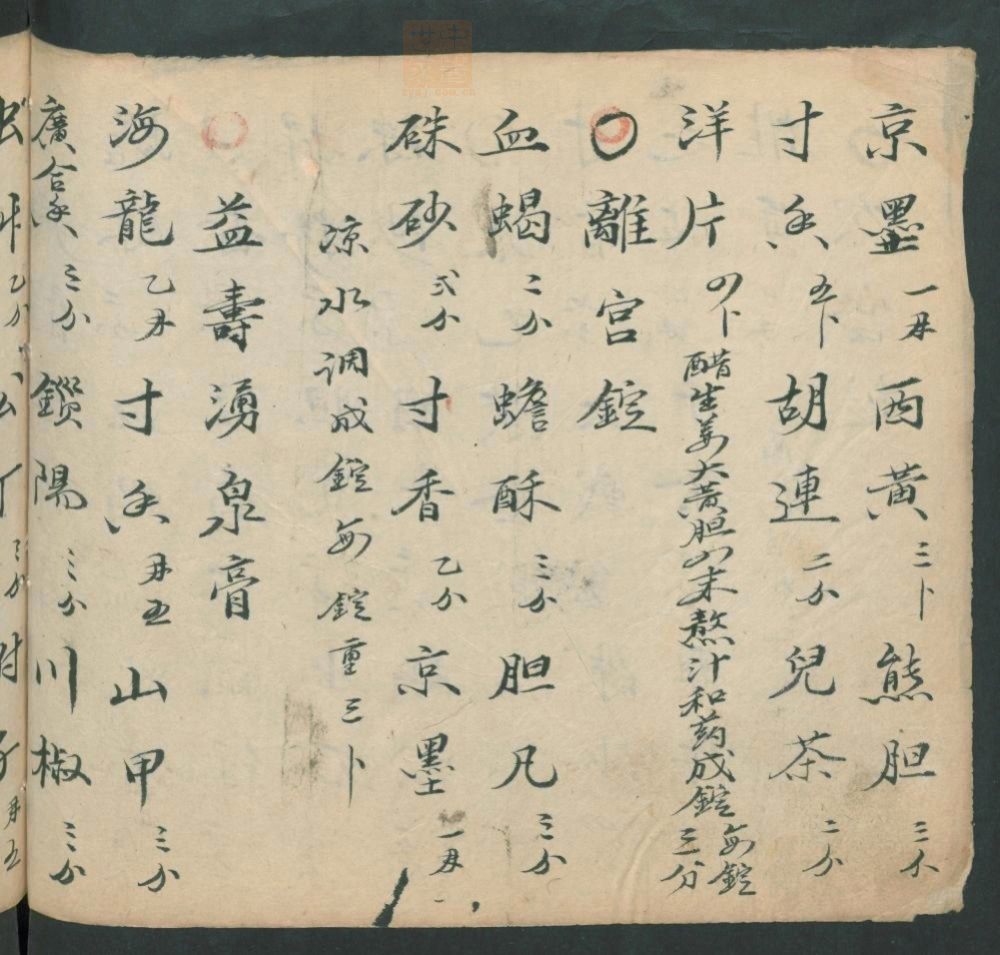 京墨一両 西黃三卜 熊胆三个
寸香五卜 胡連二分 兒茶二分
洋片四卜 醋生姜大黃胆四末熬汁和药成錠每錠三分
離宮錠
血蝎二分 蟾酥三分 胆凡三分
硃砂弍分 寸香乙分 京墨一両
凉水调成錠每錠重三卜
益壽湧泉膏
海龍乙両 寸香両五 山甲三分
廣合香三分 鎖陽三分 川椒三分